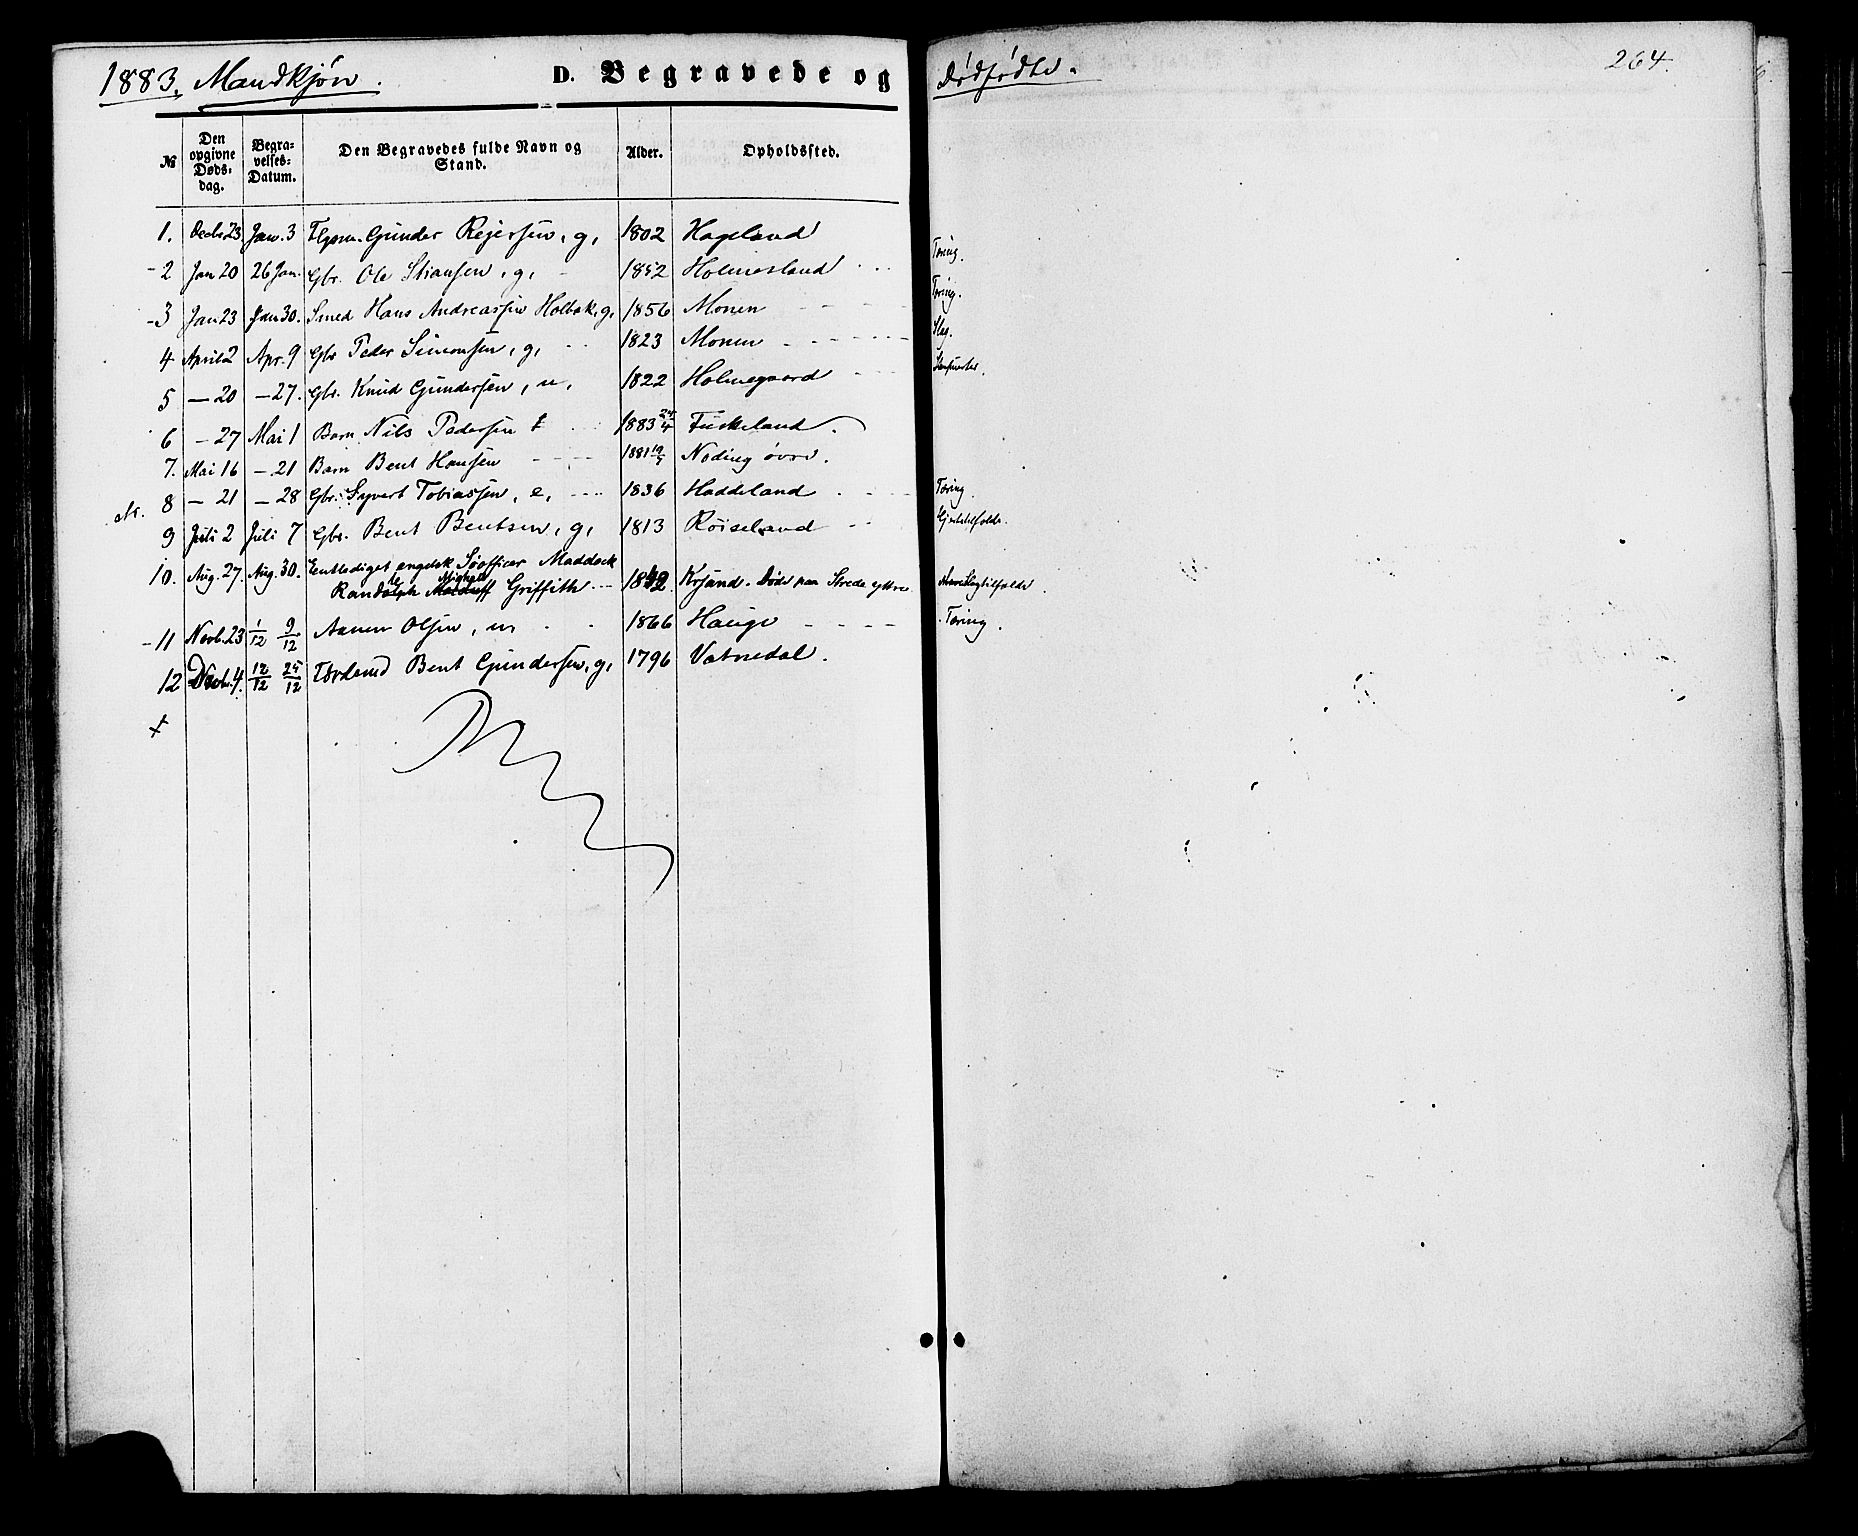 1883. Mandkjøn. D. Begravede og Dødfødte. 264.
№ Den opgivne Døds-dag. Begra-velses-Datum. Den Begravedes fulde Navn og Stand. Alder. Opholdssted.
1. Decbr 23. Jan. 3 Gunder Reiersen, g, 1802 Hageland
2 Jan 20 26 Jan. Gbr. Ole Stiansen, g, 1852 Holmesland Tæring.
3 Jan 23 Jan 30. Smed Hans Andreassen Holbæk, g, 1856 Monen Tæring.
4 April 2 Apr. 9 Gbr Peder Simonsen, g, 1823 Monen Slag.
5 — 20 — 27. Gbr. Knud Gundersen, u, 1822 Holmegaard
6 — 27 Mai 1 Barn Nils Pedersen t 1883 24/4 Fuskeland.
7. Mai 16 — 21 Barn Bent Hansen 1881 Noding øvre.
8 — 21 — 28 Gbr. Syvert Tobiassen, e, 1836 Haddeland Tæring.
9 Juli 2 Juli 7 Gbr. Bent Bentsen, g, 1813 Røiseland
10. Aug. 27. Aug. 30. Entlediget engelsk Søofficer Maddock
Randolph Griffith Krsand. Døde paa Strede yttre
11 Novb. 23 1/12 9/12 Aanen Olsen, u 1866 Hauge Tæring.
12 Decbr. 4. 12/12 25/12 Bent Gundersen, g, 1796 Vatnedal.